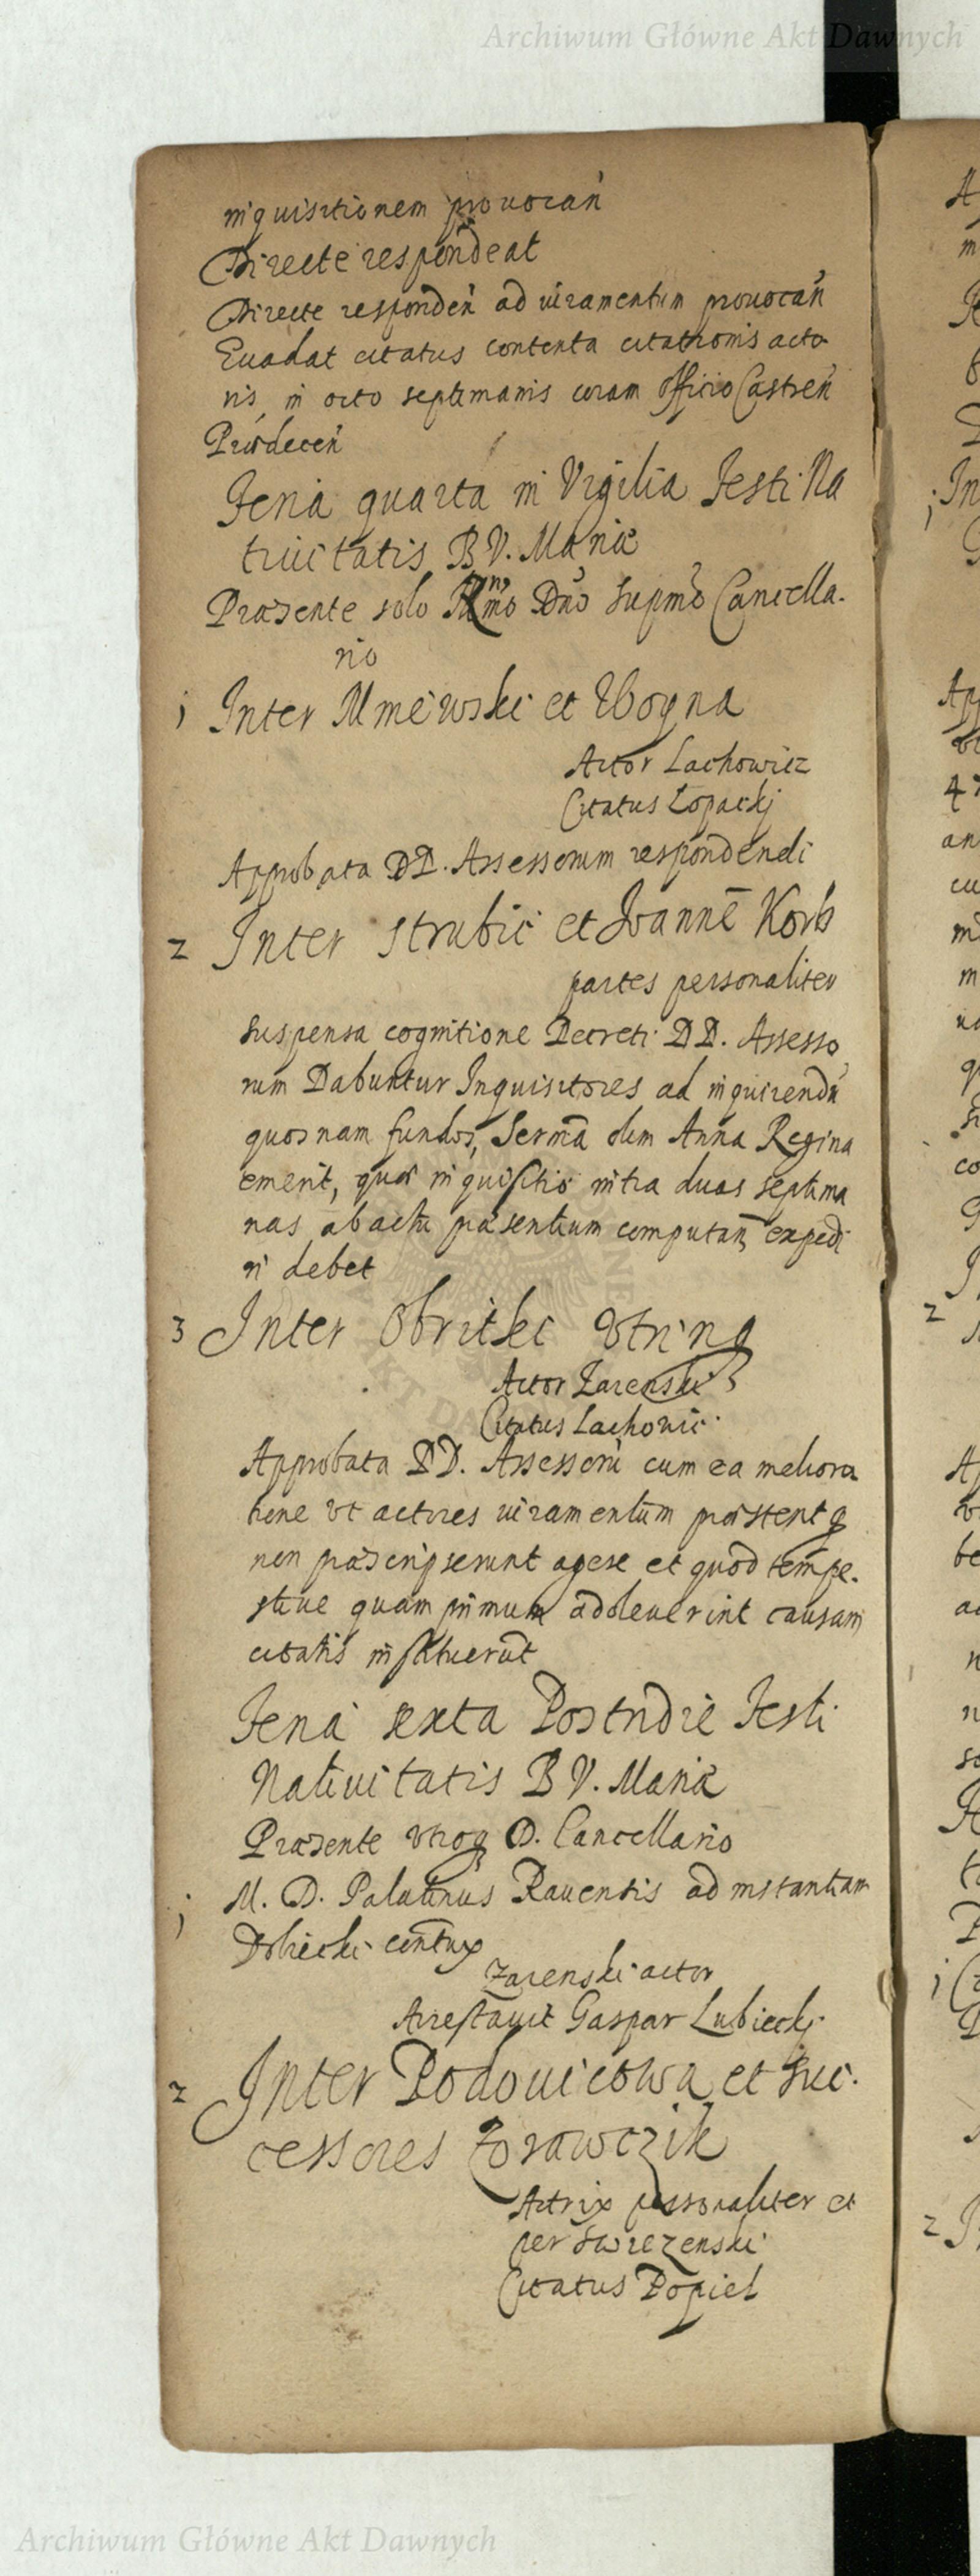 Archiwum Główne Akt Dawnych
inquisitionem prouocan
Directe respondeat
Directe responden ad iuramentum prouocan
Euadat citatus contenta citationis acto
ris in octo septimanis coram officio Castren
Feria quarta in Vigilia Festi Na
tiuitatis B V. Mariæ
Præsente solo Dno Supmo Cancella-
rio
1 Inter Mniewski et
Actor Lachowicz
Citatus Łopackj
Approbata DD. Assessorum respondendi
2 Inter Strubic et Joannē Korb
partes personaliter
Suspensa cognitione Decreti DD. Assesso
rum Dabuntur Inquisitores ad inquirendū
quosnam fundos, Sermā olim Anna Regina
emerit, quæ inquisitio intra duas septima
nas ab actu præsentium computan expedi
ri debet
3 Inter Obritski Vtrinq
Actor Zarenski
Citatus Lachouic
Approbata DD. Assessorū cum ea meliora
tione vt actores iuramentum præstent q
non præscripserunt agere et quod tempe-
stiue quam primum adoleuerint causam
citatis instituerūt
Feria sexta Postridie Festi
Natiuitatis B V. Mariæ
Præsente vtroq D. Cancellario
1 M. D. Palatinus Rauensis ad instantiam
Zarenski actor
Arrestauit Gaspar Lubieckj
2 Inter Podouicowa et Suc-
cessores Zorawczik
Actrix personaliter et
per Swiezenski
Citatus Popiel
Archiwum Główne Akt Dawnych